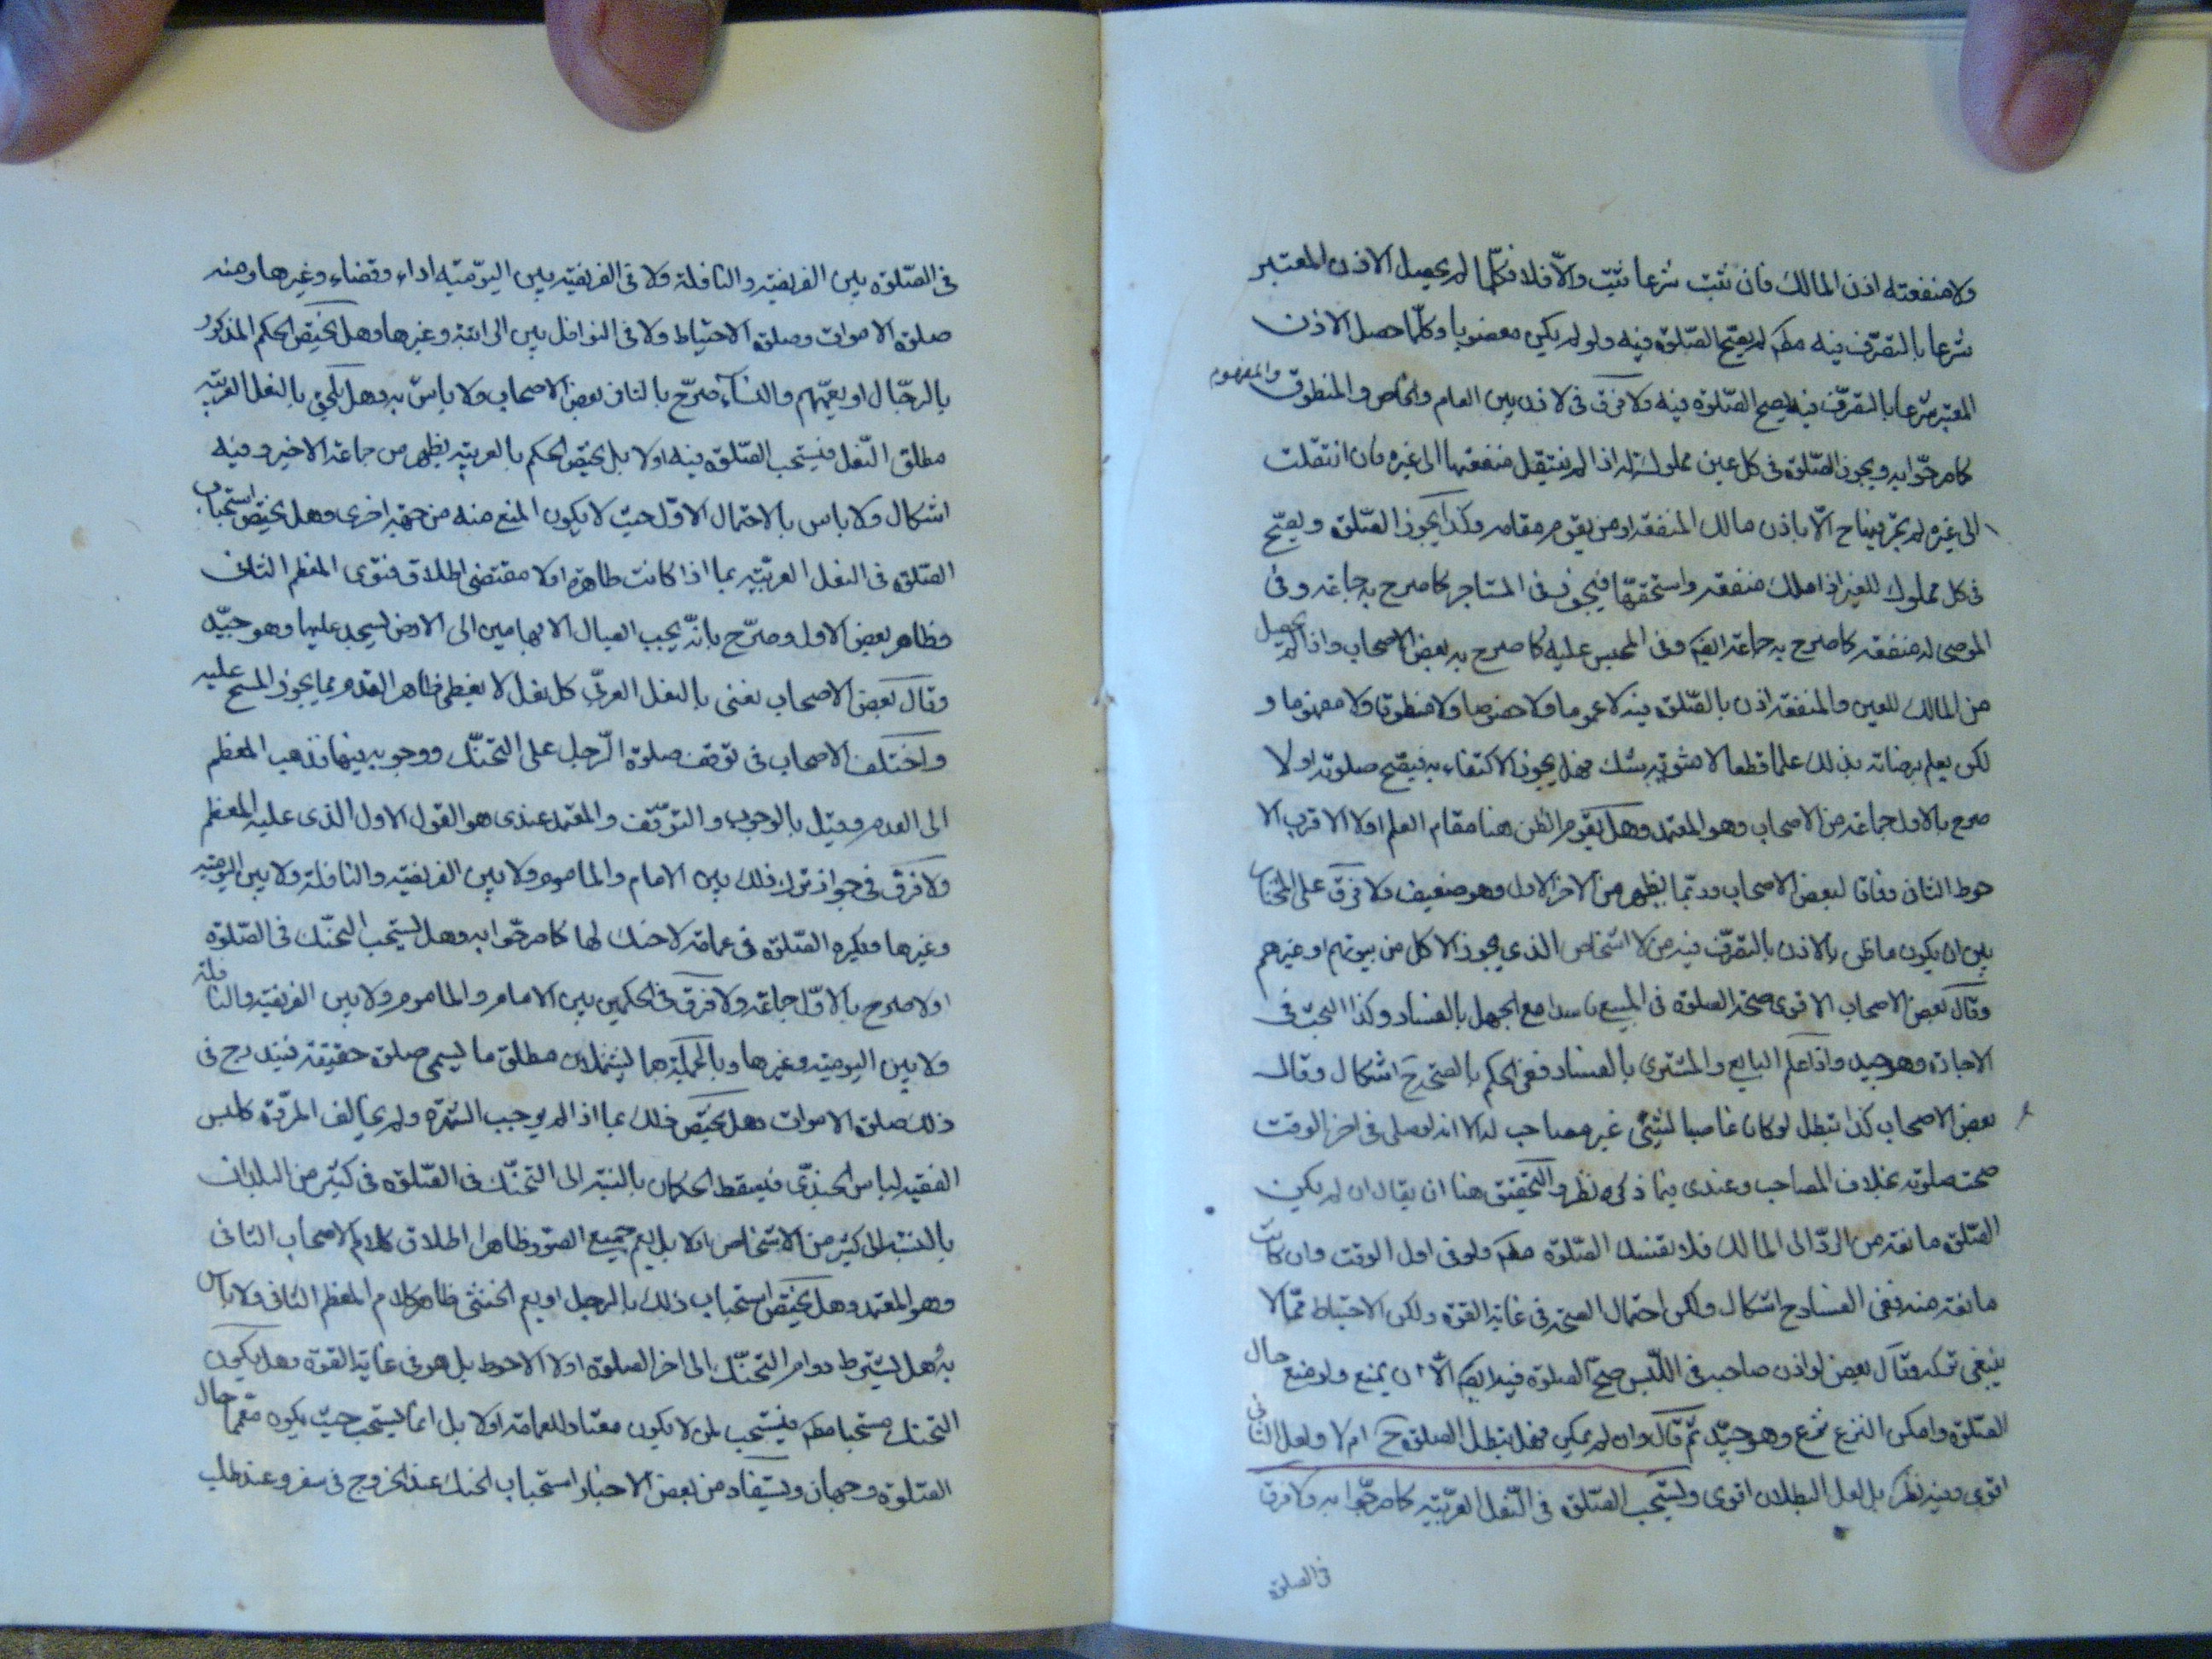 ولا منفعته اذن المالك فان ثبت شرعا ثبت والّا فلا فكلّما لم يحصل الاذن المعتبر
شرعا بالتصرّف فيه مطم لم يصحّ الصّلوة فيه ولو لم يكن مغصوبا وكلّما حصل الاذن
المعتبر شرعا بالتصرّف فيه يصح الصّلوة فيه ولا فرق فى الاذن بين العام والخاص والمنطوق والمفهوم
كما صرّحوا به ويجوز الصّلوة فى كل عين مملوكة له اذا لم ينتقل منفعتها الى غيره فان انتقلت
الى غيره لم يجز الّا باذن مالك المنفعة او من يقوم مقامه وكذا يجوز الصّلوة ويصحّ
فى كل مملوك للغير اذا ملك منفعته واستحقّها فيجوز فى المستاجر كما صرح به جماعة وفى
الموصى له منفعته كما صرح به جماعة ايضم وفى المحبس عليه كما صرح به بعض الاصحاب واذا لم يحصل
من المالك للعين والمنفعة اذن بالصّلوة فيه لا عموما ولا خصوصا ولا منطوقا ولا مفهوما و
لكن يعلم برضائه بذلك علما قطعا لا مشوبة بشك فهل يجوز الاكتفاء به فيصّح صلوته اولا
صرح بالاول جماعة من الاصحاب وهو المعتمد وهل يقوم الظن هنا مقام العلم اولا الاقرب الا
حوط الثانى وفاقا لبعض الاصحاب وربّما يظهر من الاخر الاول وهو ضعيف ولا فرق على المختار
بين ان يكون ما ظن بالاذن بالتصرّف فيه من الاشخاص الذى يجوز الاكل من بيوتهم او غيرهم
وقال بعض الاصحاب الاقوى صحّة الصلوة فى المبيع فاسدا مع الجهل بالفساد وكذا البحث فى
الاجارة وهو جيد واذا علم البايع والمشترى بالفساد ففى الحكم بالصحّة ح اشكال وقال
بعض الاصحاب كذا تبطل لو كان غاصبا لشيئى غير مصاحب له الا انه لو صلى فى اخر الوقت
صحت صلوته بخلاف المصاحب وعندى فيما ذكره نظر والتّحقيق هنا ان يقال ان لم يكن
الصّلوة مانعة من الردّ الى المالك فلا تفسد الصّلوة مطم ولو فى اول الوقت وان كانت
مانعة منه ففى الفساد ح اشكال ولكن احتمال الصحّة فى غاية القوة ولكن الاحتياط ممّا لا
ينبغى تركه وقال بعض لو اذن صاحبه فى اللّبس صحّ الصلوة فيه ايضم الّا ان يمنع ولو منع حال
الصّلوة وامكن النزع نزع وهو جيّد ثمّ قال وان لم يمكن فهل تبطل الصلوة ح ام لا ولعل الثانى
اقوى وفيه نظر بل لعل البطلان اقوى ويستحب الصّلوة فى النّعل العربّية كما صرّحوا به ولا فرق
فى الصلوة
فى الصّلوة بين الفريضة والنافلة ولا فى الفريضة بين اليوّميّه اداء وقضاء وغيرها ومنه
صلوة الاموات وصلوة الاحتياط ولا فى النوافل بين الراتبة وغيرها وهل يختص الحكم المذكور
بالرجّال او يعمّهم والنساء صرّح بالثانى بعض الاصحاب ولا باس به وهل يلحق بالنعل العربّيه
مطلق النّعل فيستحب الصّلوة فيه اولا بل يختص الحكم بالعربيّه يظهر من جماعة الاخير وفيه
اشكال ولا باس بالاحتمال الاوّل حيث لا يكون المنع منه من جهة اخرى وهل يختص استحباب
الصّلوة فى النعل العربّيّه بما اذا كانت طاهرة اولا مقتضى اطلاق فتوى المعظم الثانى
وظاهر بعض الاول وصرّح بانّه يجب ايصال الابهامين الى الارض ليسجد عليها وهو جيّد
وقال بعض الاصحاب نعنى بالنعل العربّى كل نعل لا يغطى ظاهر القدم مما يجوز المسح عليه
واختلف الاصحاب فى توقف صلوة الرّجل على التحنّك ووجوبه فيها فذهب المعظم
الى العدم وقيل بالوجوب والتوّقف والمعتمد عندى هو القول الاول الذى عليه المعظم
ولا فرق فى جواز ترك ذلك بين الامام والماموم ولا بين الفريضة والنافلة ولا بين اليوميّه
وغيرها ويكره الصّلوة فى عمامة لا حنك لها كما صرحّوا به وهل يستحب التحنّك فى الصّلوة
اولا صرح بالاوّل جماعة ولا فرق فى الحكمين بين الامام والماموم ولا بين الفريضة والنافلة
ولا بين اليومية وغيرها وبالجملة هما يشملان مطلق ما يسمى صلوة حقيقة فيندرج فى
ذلك صلوة الاموات وهل يختص ذلك بما اذا لم يوجب الشهرة ولم يخالف المروّة كلبس
الفقيه لباس الجندّى فيسقط الحكمان بالنسبة الى التحنّك فى الصّلوة فى كثير من البلدان
بالنسبة الى كثير من الاشخاص اولا بل يعم جميع الصور وظاهر اطلاق كلام الاصحاب الثانى
وهو المعتمد وهل يختص استحباب ذلك بالرجل او يعم الخنثى ظاهر كلام المعظم الثانى ولا باس
به وهل يشترط دوام التحنّك الى اخر الصلوة اولا الاحوط بل هو فى غاية القوة وهل يكون
التحنك مستحبا مطم فيستحب لمن لا يكون معتادا للعمامة اولا بل انما يستحب حيث يكون متعمما حال
الصّلوة وجهان ويستفاد من بعض الاخبار استحباب الحنك عند الخروج فى سفر وعند طلب